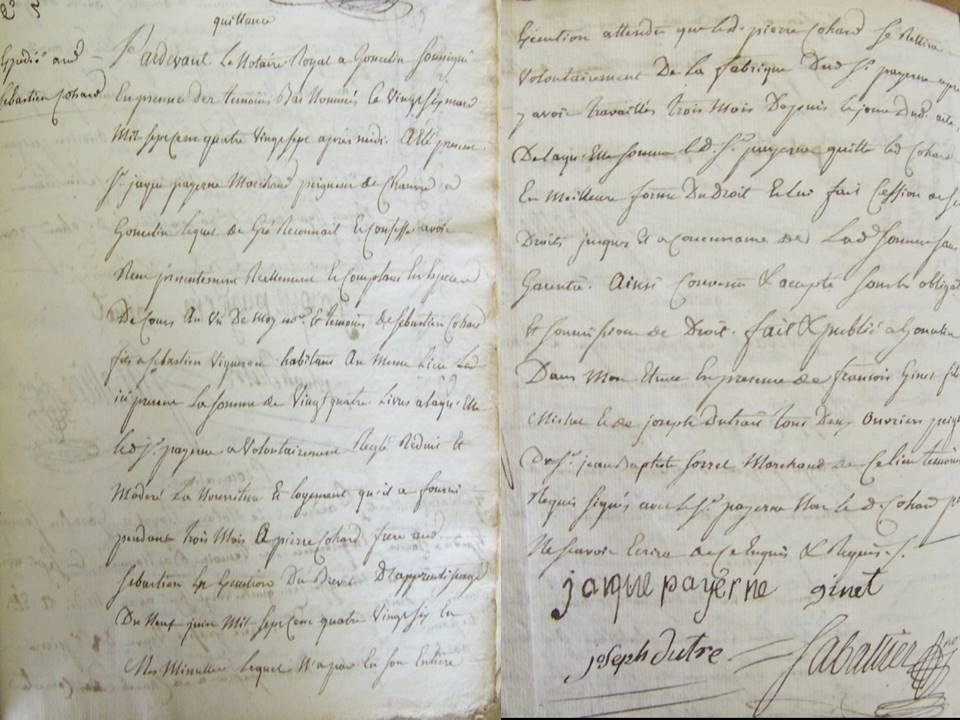 quittance
Expédié aud
Sebastien Cohard
Pardevant Le Notaire Royal a Goncelin soussigné
En presence des temoins Bas Nommés Le Vingt sept mars
Mil sept cent quatre Vingt sept apres midi. A Eté present
Sr jaque payerne Marchand peigneur de Chanvre a
Goncelin Lequel de Gré Reconnait Et Confesse avoir
Reçu presentement Reellement Et Comptant En Especes
De Cours Au Vû De moy nore. Et temoins de Sebastien Cohard
fils a Sebastien Vigneron habitant Au meme Lieu Led
ici present La somme de Vingt quatre Livres a laquelle
led Sr. payerne a Volontairement Reglé Reduit Et
Moderé La Nourriture Et logement qu'il a fourni
pendant trois Mois A pierre Cohard frere aud.
Sebastien En Execution Du Brevet D'apprentissage
Du Neuf juin Mil sept cent quatre Vingt six En
Mes Minuttes Lequel N'a pas Eu son Entiere
Execution attendu que led. pierre Cohard se Retira
Volontairement De La fabrique Dud Sr. payerne apres
y avoir travaillés trois Mois Depuis le jour Dud. acte.
De laquelle somme led. Sr. payerne quitte led Cohard
En Meilleure forme Du Droit Et lui fait Cession de ses
Droits jusques Et a Concurrance de Lad somme sans
Garentie. Ainsi Convenu & accepté sous les obligations
Et soumissions de Droit. fait & publié a Goncelin
Dans Mon Etude En presence de francois Ginet fils
Michel Et de joseph Dutrait tous Deux Ouvriers peigneurs
De Sr. jean Baptiste sorrel Marchand de temoins
Requis signés avec le Sr. payerne Non le d Cohard pr
Ne scavoir Ecrire de ce Enquis & Requis. /.
jaque payerne ginet
joseph dutre. Sabattier